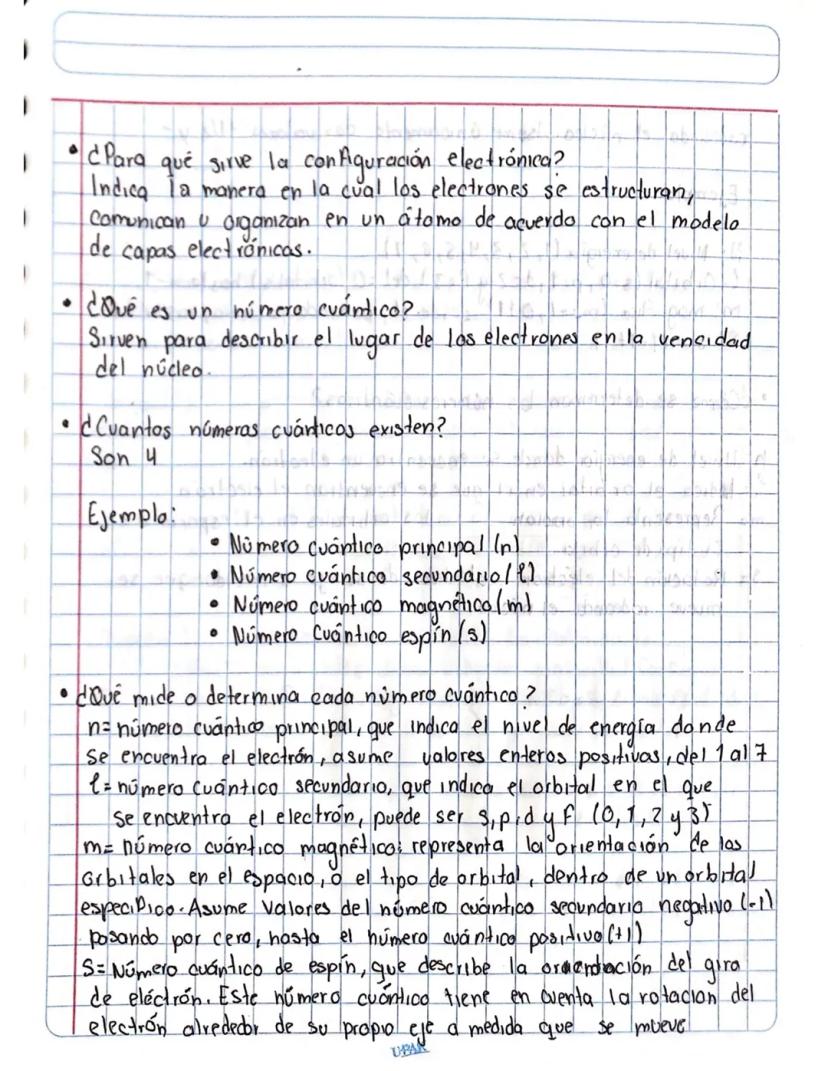 • ¿Para qué sirve la configuración electrónica?
Indica la manera en la cual los electrones se estructuran,
comunican u organizan en un átomo de acuerdo con el modelo
de capas electrónicas.
• ¿Qué es un número cuántico?
Sirven para describir el lugar de los electrones en la vencidad
del núcleo.
• ¿Cuantos números cuánticos existen?
Son 4
Ejemplo:
• Número cuántico principal (n)
• Número cuántico secundario (l)
• Número cuántico magnético (m)
• Número Cuántico espín (s)
• ¿Qué mide o determina cada número cuántico?
n= número cuántico principal, que indica el nivel de energía donde
se encuentra el electrón, asume valores enteros positivas, del 1 al 7
l= número cuántico secundario, que indica el orbital en el que
se encuentra el electrón, puede ser s, p, d y f (0, 1, 2 y 3)
m= número cuántico magnético: representa la orientación de los
orbitales en el espacio, o el tipo de orbital, dentro de un orbital
especifico. Asume valores del número cuántico secundario negativo (-1)
pasando por cero, hasta el número cuántico positivo (+1)
S= Número cuántico de espín, que describe la del giro
de eléctrón. Este número cuántico tiene en cuenta la rotacion del
electrón alrededor de su propio eje a medida que se mueve